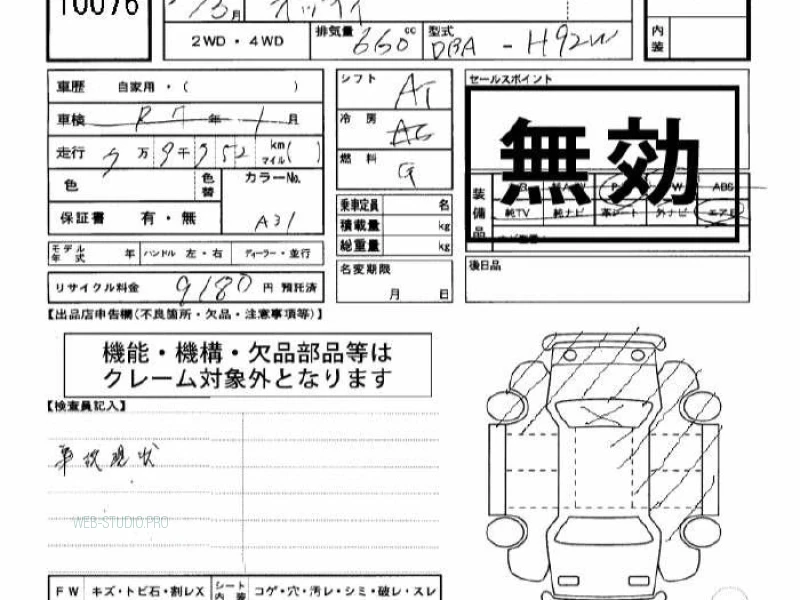 10076
月 オッティ
2WD ・ 4WD 排気量 660 cc 型式 DBA - H92W
内装
車歴 自家用 ・ ( )
車検 R 7 年 1 月
走行 万 9千 9 52 km マイル ( )
色 色替 カラーNo.
保証書 有 ・ 無 A31
モデル年式 年 ハンドル 左 ・ 右 ディーラー ・ 並行
リサイクル料金 9180 円 預託済
シフト AT
冷房 AC
燃料 G
乗車定員 名
積載量 kg
総重量 kg
名変期限
月 日
セールスポイント
無効
装備品
ABS
純TV 純ナビ 革シート 外ナビ
後日品
【出品店申告欄(不良箇所・欠品・注意事項等)】
機能・機構・欠品部品等は
クレーム対象外となります
【検査員記入】
事故現状
WEB-STUDIO.PRO
FW キズ・トビ石・割レX シート内装 コゲ・穴・汚レ・シミ・破レ・スレ